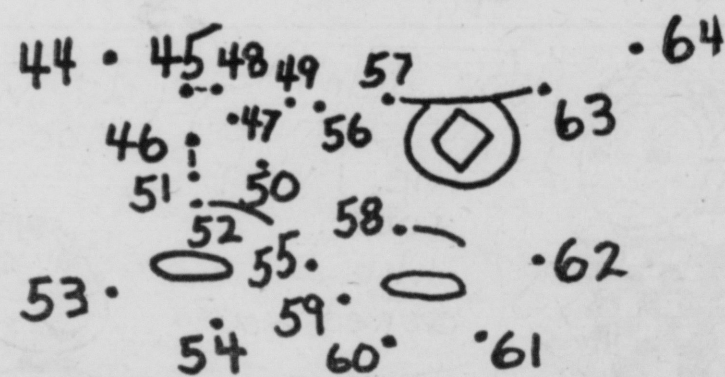 44 45 48 49 57 64
46 47 56 63
51 50
52 58
53 55 62
54 59 60 61